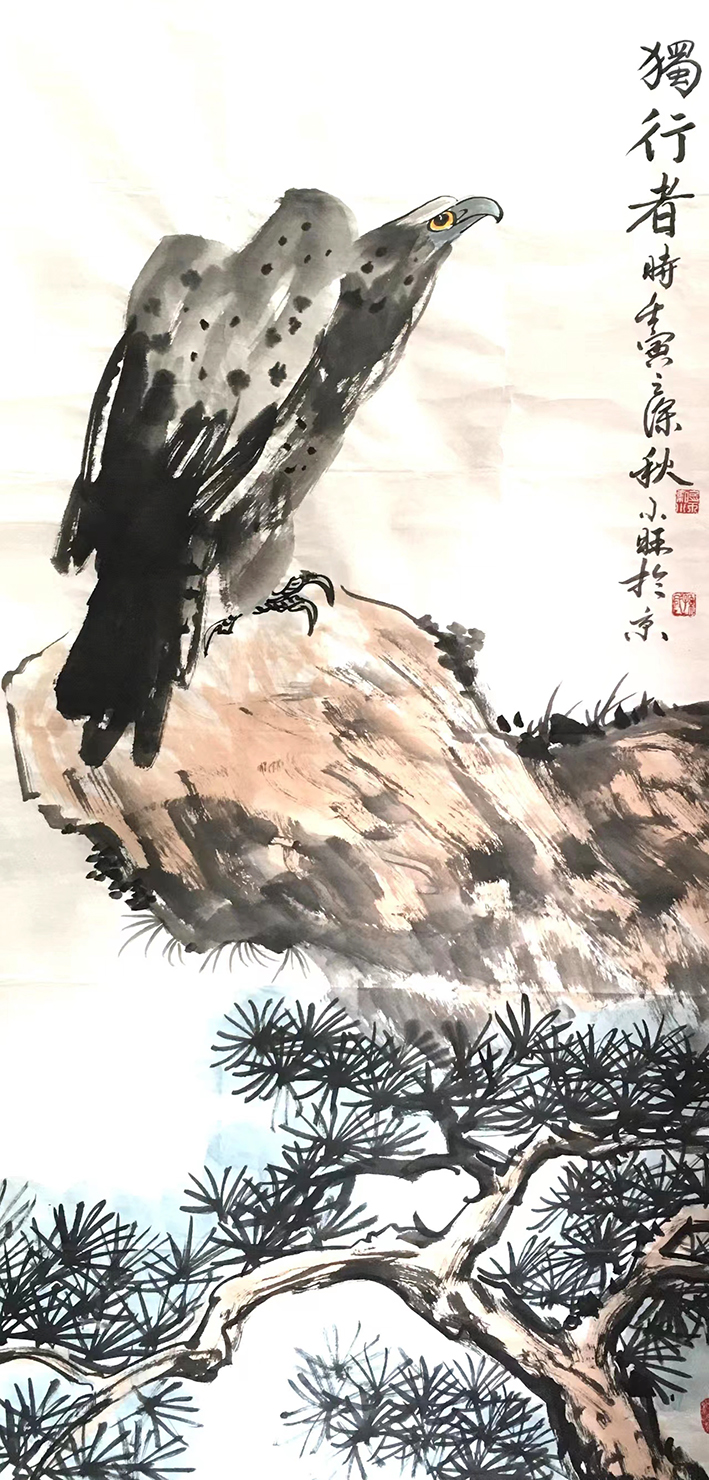 獨行者時壬寅之深秋小旺於京